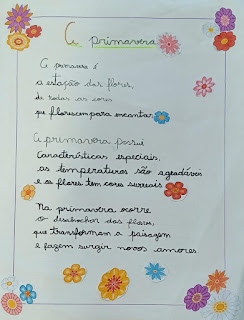 A primavera
A primavera é
a estação das flores,
de todas as cores
que florescem para encantar.
A primavera possui
Características especiais,
as temperaturas são agradáveis
e as flores tem cores surreais
Na primavera ocorre
o desabrochar das flores,
que transformam a paisagem
e fazem surgir novos amores